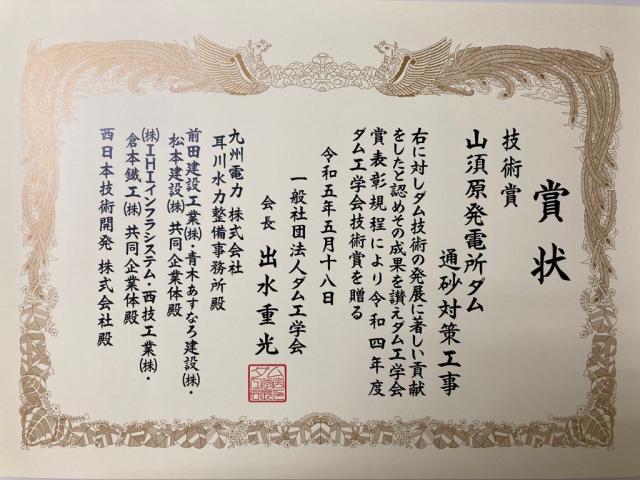 賞状
技術賞
山須原発電所ダム
通砂対策工事
右に対しダム技術の発展に著しい貢献
をしたと認めその成果を讃えダム工学会
賞表彰規程により令和四年度
ダム工学会技術賞を贈る
令和五年五月十八日
一般社団法人ダム工学会
会長 出水重光
九州電力 株式会社
耳川水力整備事務所殿
前田建設工業㈱・青木あすなろ建設㈱・
松本建設㈱ 共同企業体殿
㈱IHIインフラシステム・西技工業㈱・
倉本鐵工㈱ 共同企業体殿
西日本技術開発 株式会社殿